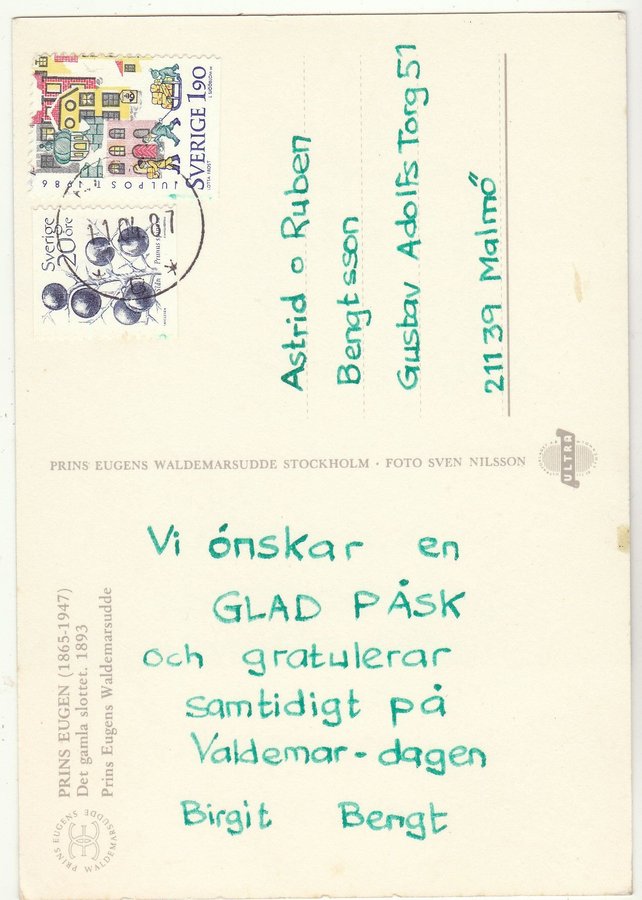 SVERIGE 1.90
JULPOST 1986
Sverige
20 öre
11.04.87
Astrid o Ruben
Bengtsson
Gustav Adolfs Torg 51
211 39 Malmö
PRINS EUGENS WALDEMARSUDDE STOCKHOLM · FOTO SVEN NILSSON
ULTRA
Vi önskar en
GLAD PÅSK
och gratulerar
samtidigt på
Valdemar-dagen
Birgit Bengt
PRINS EUGEN (1865-1947)
Det gamla slottet. 1893
Prins Eugens Waldemarsudde
PRINS EUGENS WALDEMARSUDDE